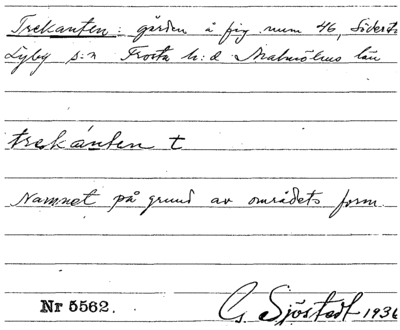 Trekanten: gården å fig. num 46, Södersto
Lyby s:n Frosta h:d Malmöhus län
trekánten t
Namnet på grund av områdets form.
Nr 5562.
G. Sjöstedt 1936